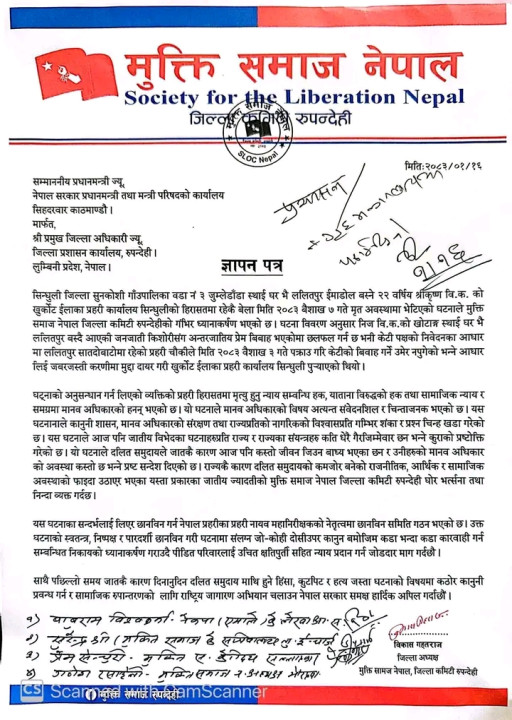 मुक्ति समाज नेपाल
Society for the Liberation Nepal
जिल्ला कमिटी रुपन्देही
मुक्ति समाज नेपाल
SLOC Nepal
मिति:२०८३/०१/१६
सम्माननीय प्रधानमन्त्री ज्यू,
नेपाल सरकार प्रधानमन्त्री तथा मन्त्री परिषदको कार्यालय
सिहदरवार काठमाण्डौ ।
मार्फत,
श्री प्रमुख जिल्ला अधिकारी ज्यू,
जिल्ला प्रशासन कार्यालय, रुपन्देही ।
लुम्बिनी प्रदेश, नेपाल ।
प्रशासन
ज्ञापन पत्र
सिन्धुली जिल्ला सुनकोशी गाँउपालिका वडा नं ३ जुम्लेडाँडा स्थाई घर भै ललितपुर ईमाडोल बस्ने २२ वर्षिय श्रीकृष्ण वि.क. को
खुर्कोट ईलाका प्रहरी कार्यालय सिन्धुलीको हिरासतमा रहेके बेला मिति २०८३ बैशाख ७ गते मृत अवस्थामा भेटिएको घटनाले मुक्ति
समाज नेपाल जिल्ला कमिटी रुपन्देहीको गंभीर ध्यानाकर्षण भएको छ । घटना विवरण अनुसार निज वि.क.को खोटाङ स्थाई घर भै
ललितपुर बस्दै आएकी जनजाती किशोरीसंग अन्तरजातिय प्रेम बिबाह भएकोमा छलफल गर्न छ भनी केटी पक्षको निवेदनका आधार
मा ललितपुर सातदोबाटोमा रहेको प्रहरी चौकीले मिति २०८३ बैशाख ३ गते पक्राउ गरि केटीको बिवाह गर्ने उमेर नपुगेको भन्ने आधार
लिई जवरजस्ती करणीमा मुद्दा दायर गरी खुर्कोट ईलाका प्रहरी कार्यालय सिन्धुली पुऱ्याएको थियो ।
घट्नाको अनुसन्धान गर्न लिएको व्यक्तिको प्रहरी हिरासतमा मृत्यु हुनु न्याय सम्वन्धि हक, याताना विरुद्धको हक तथा सामाजिक न्याय र
समग्रमा मानव अधिकारको हनन् भएको छ । यो घटनाले मानव अधिकारको विषय अत्यन्त संवेदनशिल र चिन्ताजनक भएको छ । यस
घटनानाले कानुनी शासन, मानव अधिकारको संरक्षण तथा राज्यप्रतिको नागरिकको विश्वासप्रति गम्भिर शंका र प्रश्न चिन्ह खडा गरेको
छ । यस घटनाले आज पनि जातीय विभेदका घटनाहरुप्रति राज्य र राज्यका संयन्त्रहरु कति धेरै गैरजिम्मेवार छन भन्ने कुराको प्रष्टोक्ति
गरेको छ । यो घटनाले दलित समुदायले जातकै कारण आज पनि कस्तो जीवन जिउन बाध्य भएका छन र उनीहरुको मानव अधिकार
को अवस्था कस्तो छ भन्ने प्रष्ट सन्देश दिएको छ । राज्यकै कारण दलित समुदायको कमजोर बनेको राजनीतिक, आर्थिक र सामाजिक
अवस्थाको फाइदा उठाएर भएका यस्ता प्रकारका जातीय ज्यादतीको मुक्ति समाज नेपाल जिल्ला कमिटी रुपन्देही घोर भर्त्सना तथा
निन्दा व्यक्त गर्दछ ।
यस घटनाका सन्दर्भलाई लिएर छानविन गर्न नेपाल प्रहरीका प्रहरी नायव महानिरीक्षकको नेतृत्वमा छानविन समिति गठन भएको छ । उक्त
घटनाको स्वतन्त्र, निष्पक्ष र पारदर्शी छानविन गरी घटनामा संलग्न जो-कोही दोसीउपर कानुन बमोजिम कडा भन्दा कडा कारवाही गर्न
सम्वन्धित निकायको ध्यानाकर्षण गराउदै पीडित परिवारलाई उचित क्षतिपुर्ती सहित न्याय प्रदान गर्न जोडदार माग गर्दछौं ।
साथै पछिल्लो समय जातकै कारण दिनानुदिन दलित समुदाय माथि हुने हिंसा, कुटपिट र हत्य जस्ता घटनाको विषयमा कठोर कानुनी
प्रवन्ध गर्न र सामाजिक रुपान्तरणको लागि राष्ट्रिय जागरण अभियान चलाउन नेपाल सरकार समक्ष हार्दिक अपिल गर्दछौं ।
विकास गहतराज
जिल्ला अध्यक्ष
मुक्ति सामज नेपाल, जिल्ला कमिटी रुपन्देही
मुक्ति समाज रुपन्देही
CS Scanned with CamScanner